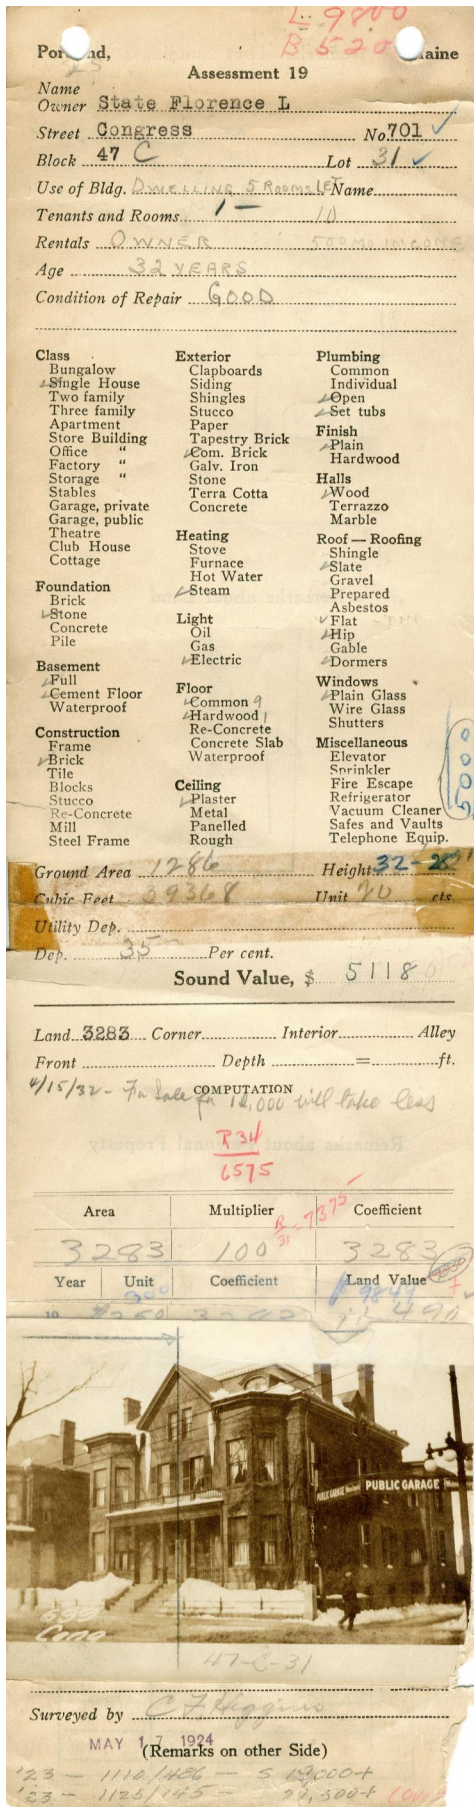 L 9800
B 520
Portland, Maine
Assessment 19
Name
Owner State Florence L
Street Congress No. 701
Block 47 C Lot 31
Use of Bldg. DWELLING 5 ROOMS LET Name
Tenants and Rooms 1 — 10
Rentals OWNER 500 MO. INCOME
Age 32 YEARS
Condition of Repair GOOD
Class
Bungalow
Single House
Two family
Three family
Apartment
Store Building
Office "
Factory "
Storage "
Stables
Garage, private
Garage, public
Theatre
Club House
Cottage
Foundation
Brick
Stone
Concrete
Pile
Basement
Full
Cement Floor
Waterproof
Construction
Frame
Brick
Tile
Blocks
Stucco
Re-Concrete
Mill
Steel Frame
Exterior
Clapboards
Siding
Shingles
Stucco
Paper
Tapestry Brick
Com. Brick
Galv. Iron
Stone
Terra Cotta
Concrete
Heating
Stove
Furnace
Hot Water
Steam
Light
Oil
Gas
Electric
Floor
Common 9
Hardwood 1
Re-Concrete
Concrete Slab
Waterproof
Ceiling
Plaster
Metal
Panelled
Rough
Plumbing
Common
Individual
Open
Set tubs
Finish
Plain
Hardwood
Halls
Wood
Terrazzo
Marble
Roof — Roofing
Shingle
Slate
Gravel
Prepared
Asbestos
Flat
Hip
Gable
Dormers
Windows
Plain Glass
Wire Glass
Shutters
Miscellaneous
Elevator
Sprinkler
Fire Escape
Refrigerator
Vacuum Cleaner
Safes and Vaults
Telephone Equip.
Ground Area 1286 Height 32-28
Cubic Feet 39368 Unit 20 cts.
Utility Dep.
Dep. 35 Per cent.
Sound Value, $ 5118
Land 3283 Corner Interior Alley
Front Depth = ft.
COMPUTATION
4/15/32 - For Sale for 12,000 will take less
R 34
6575
B 31 - 7375
Area Multiplier Coefficient
3283 100 3283
Year Unit Coefficient Land Value
300 $ 9849
19 $350 3283 11490
PUBLIC GARAGE
PUBLIC GARAGE
699
Cong
47-C-31
Surveyed by C F Higgins
MAY 17 1924
(Remarks on other Side)
'23 - 1110/486 - S 19000+
'23 - 1125/145 - 22,500+